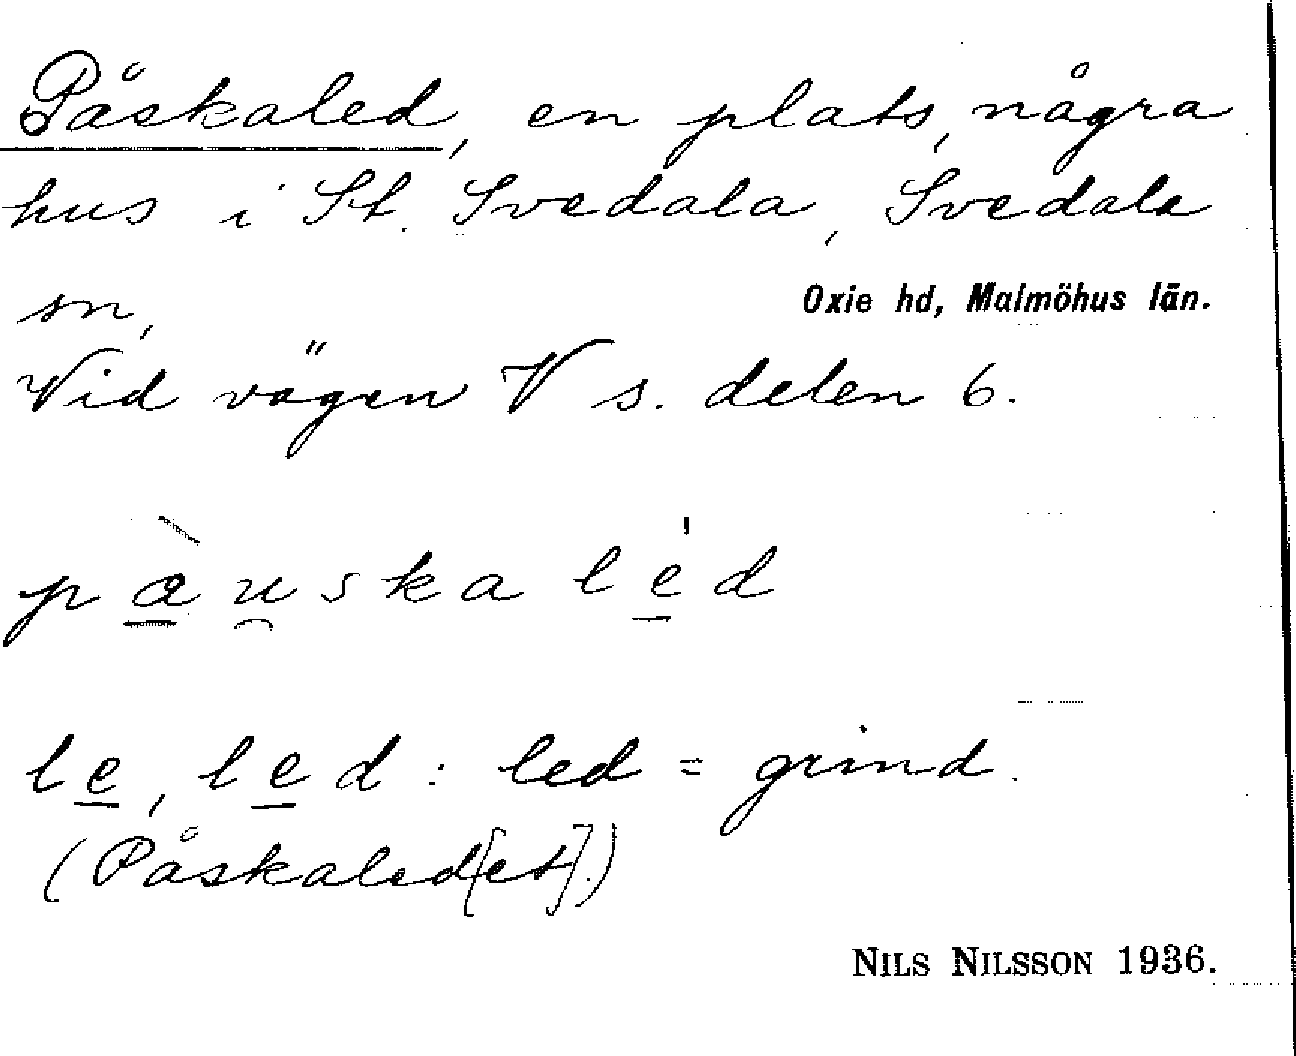 Påskaled, en plats, några
hus i St. Svedala, Svedala
sn,
Oxie hd, Malmöhus län.
Vid vägen V s. delen 6.
pà̠u̯skale̠̍d
le̠, le̠d : led = grind.
(Påskaled[et].)
NILS NILSSON 1936.